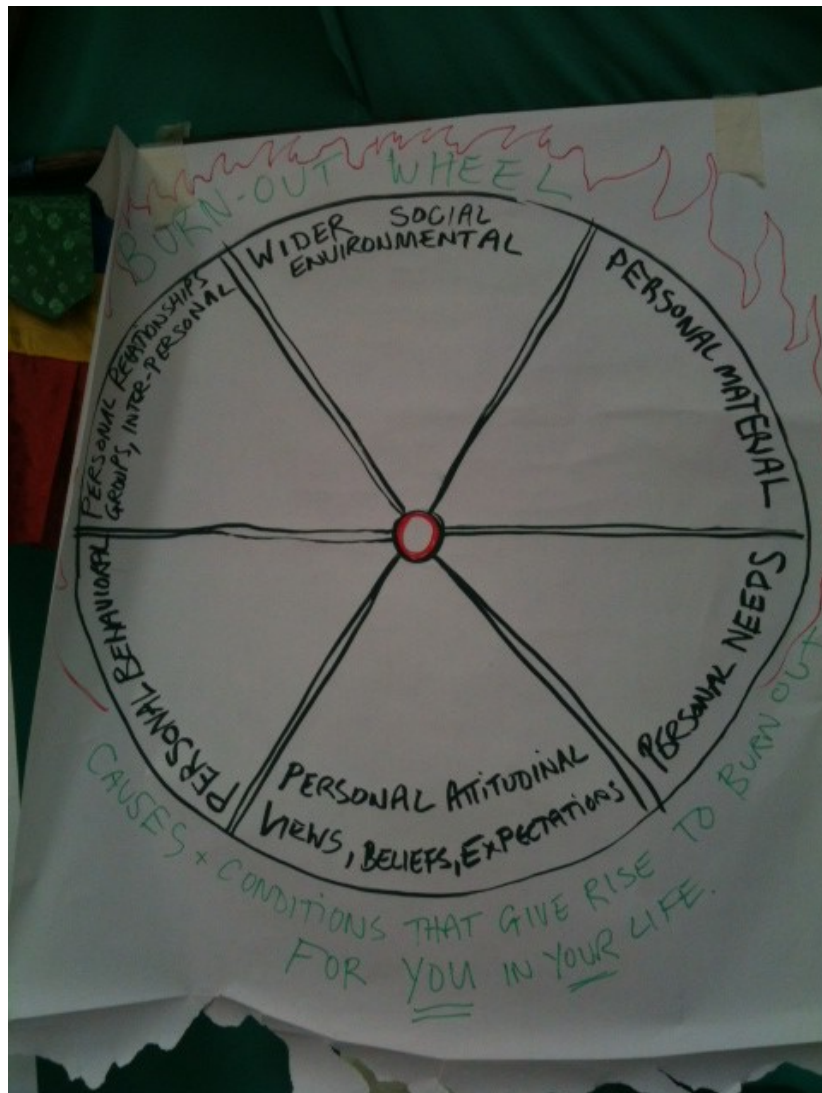 BURN-OUT WHEEL
WIDER SOCIAL
ENVIRONMENTAL
PERSONAL MATERIAL
PERSONAL NEEDS
PERSONAL ATTITUDINAL
VIEWS, BELIEFS, EXPECTATIONS
PERSONAL BEHAVIORAL
PERSONAL RELATIONSHIPS
GROUPS, INTER-PERSONAL
CAUSES + CONDITIONS THAT GIVE RISE TO BURN OUT
FOR YOU IN YOUR LIFE.